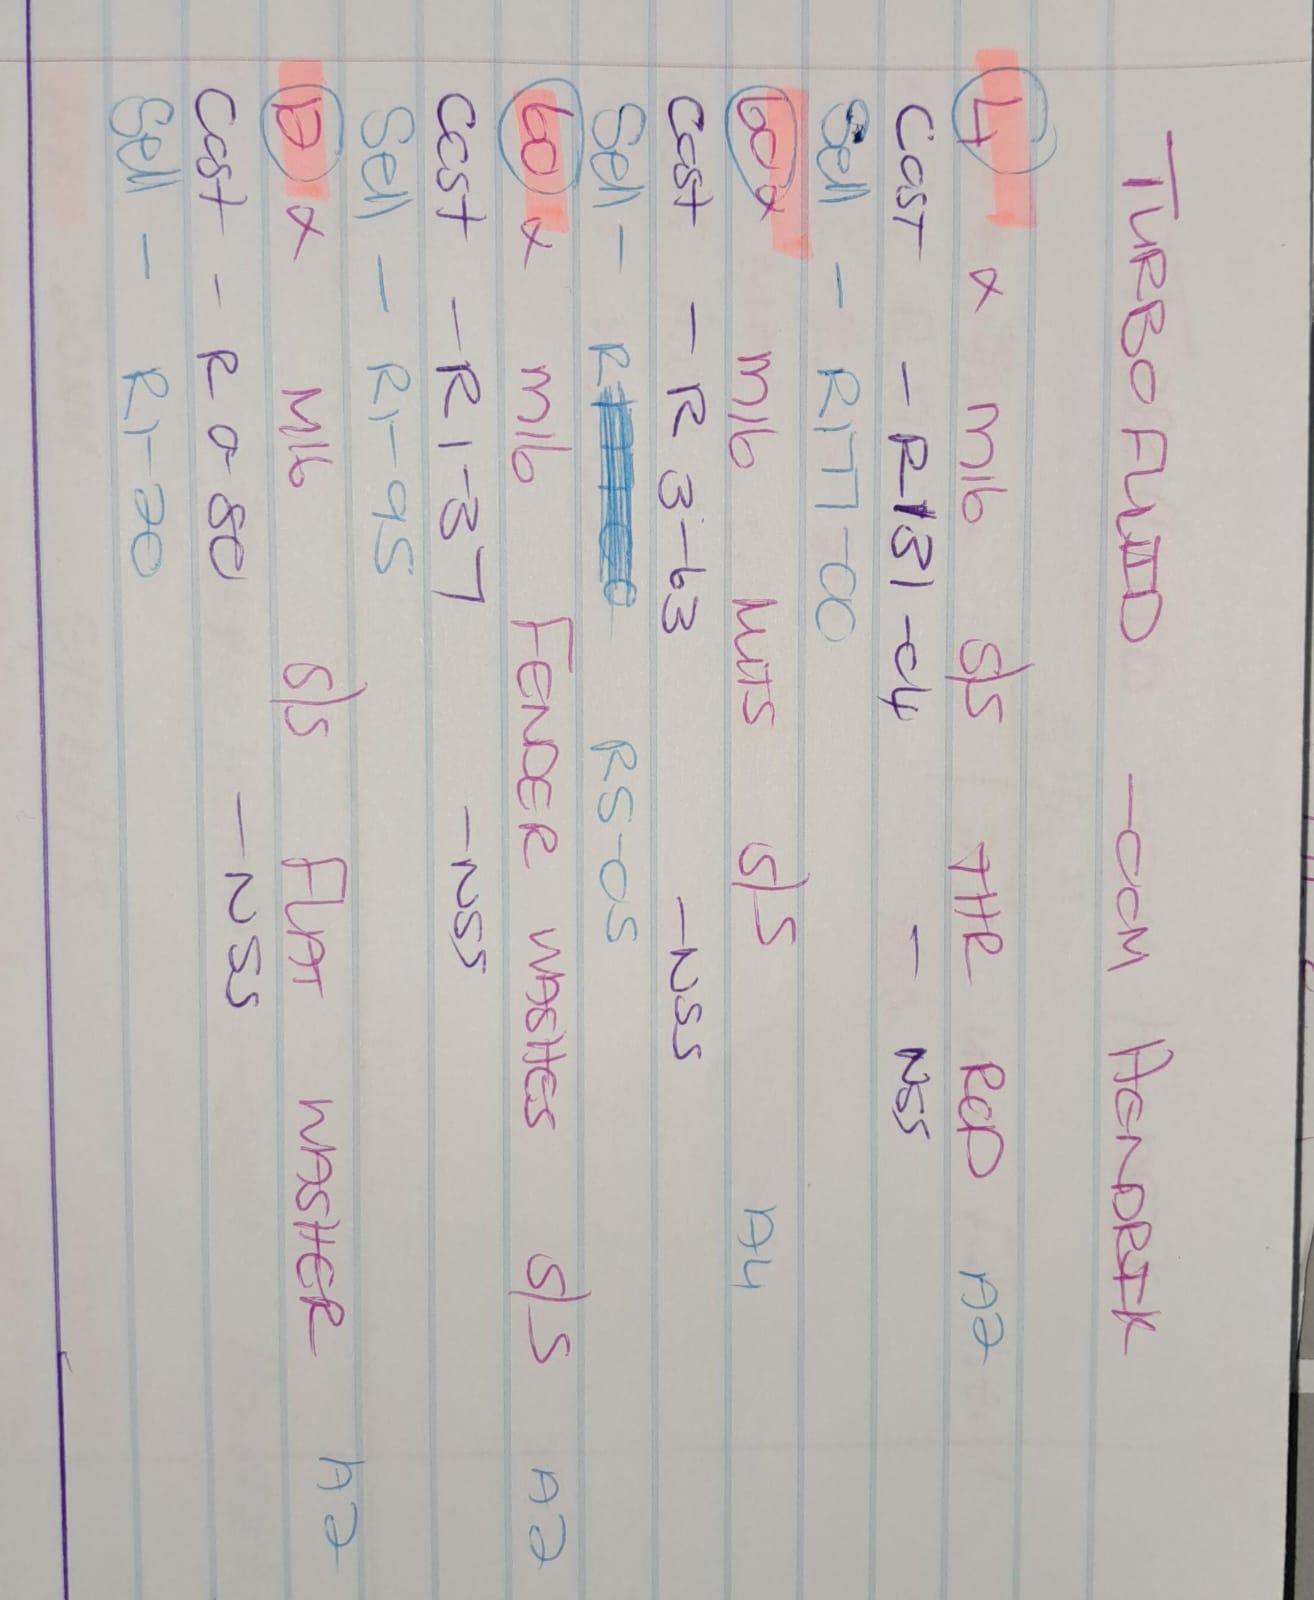 TURBO FLUID - OCM HENDRIK
4 x M16 S/S THR ROD A2
Cost - R131-04 - NSS
Sell - R177-00
60 x M16 NUTS S/S A4
Cost - R3-63 - NSS
Sell - R R5-05
60 x M16 FENDER WASHES S/S A2
Cost - R1-37 - NSS
Sell - R1-95
12 x M16 S/S FLAT WASHER A2
Cost - R0-80 - NSS
Sell - R1-20